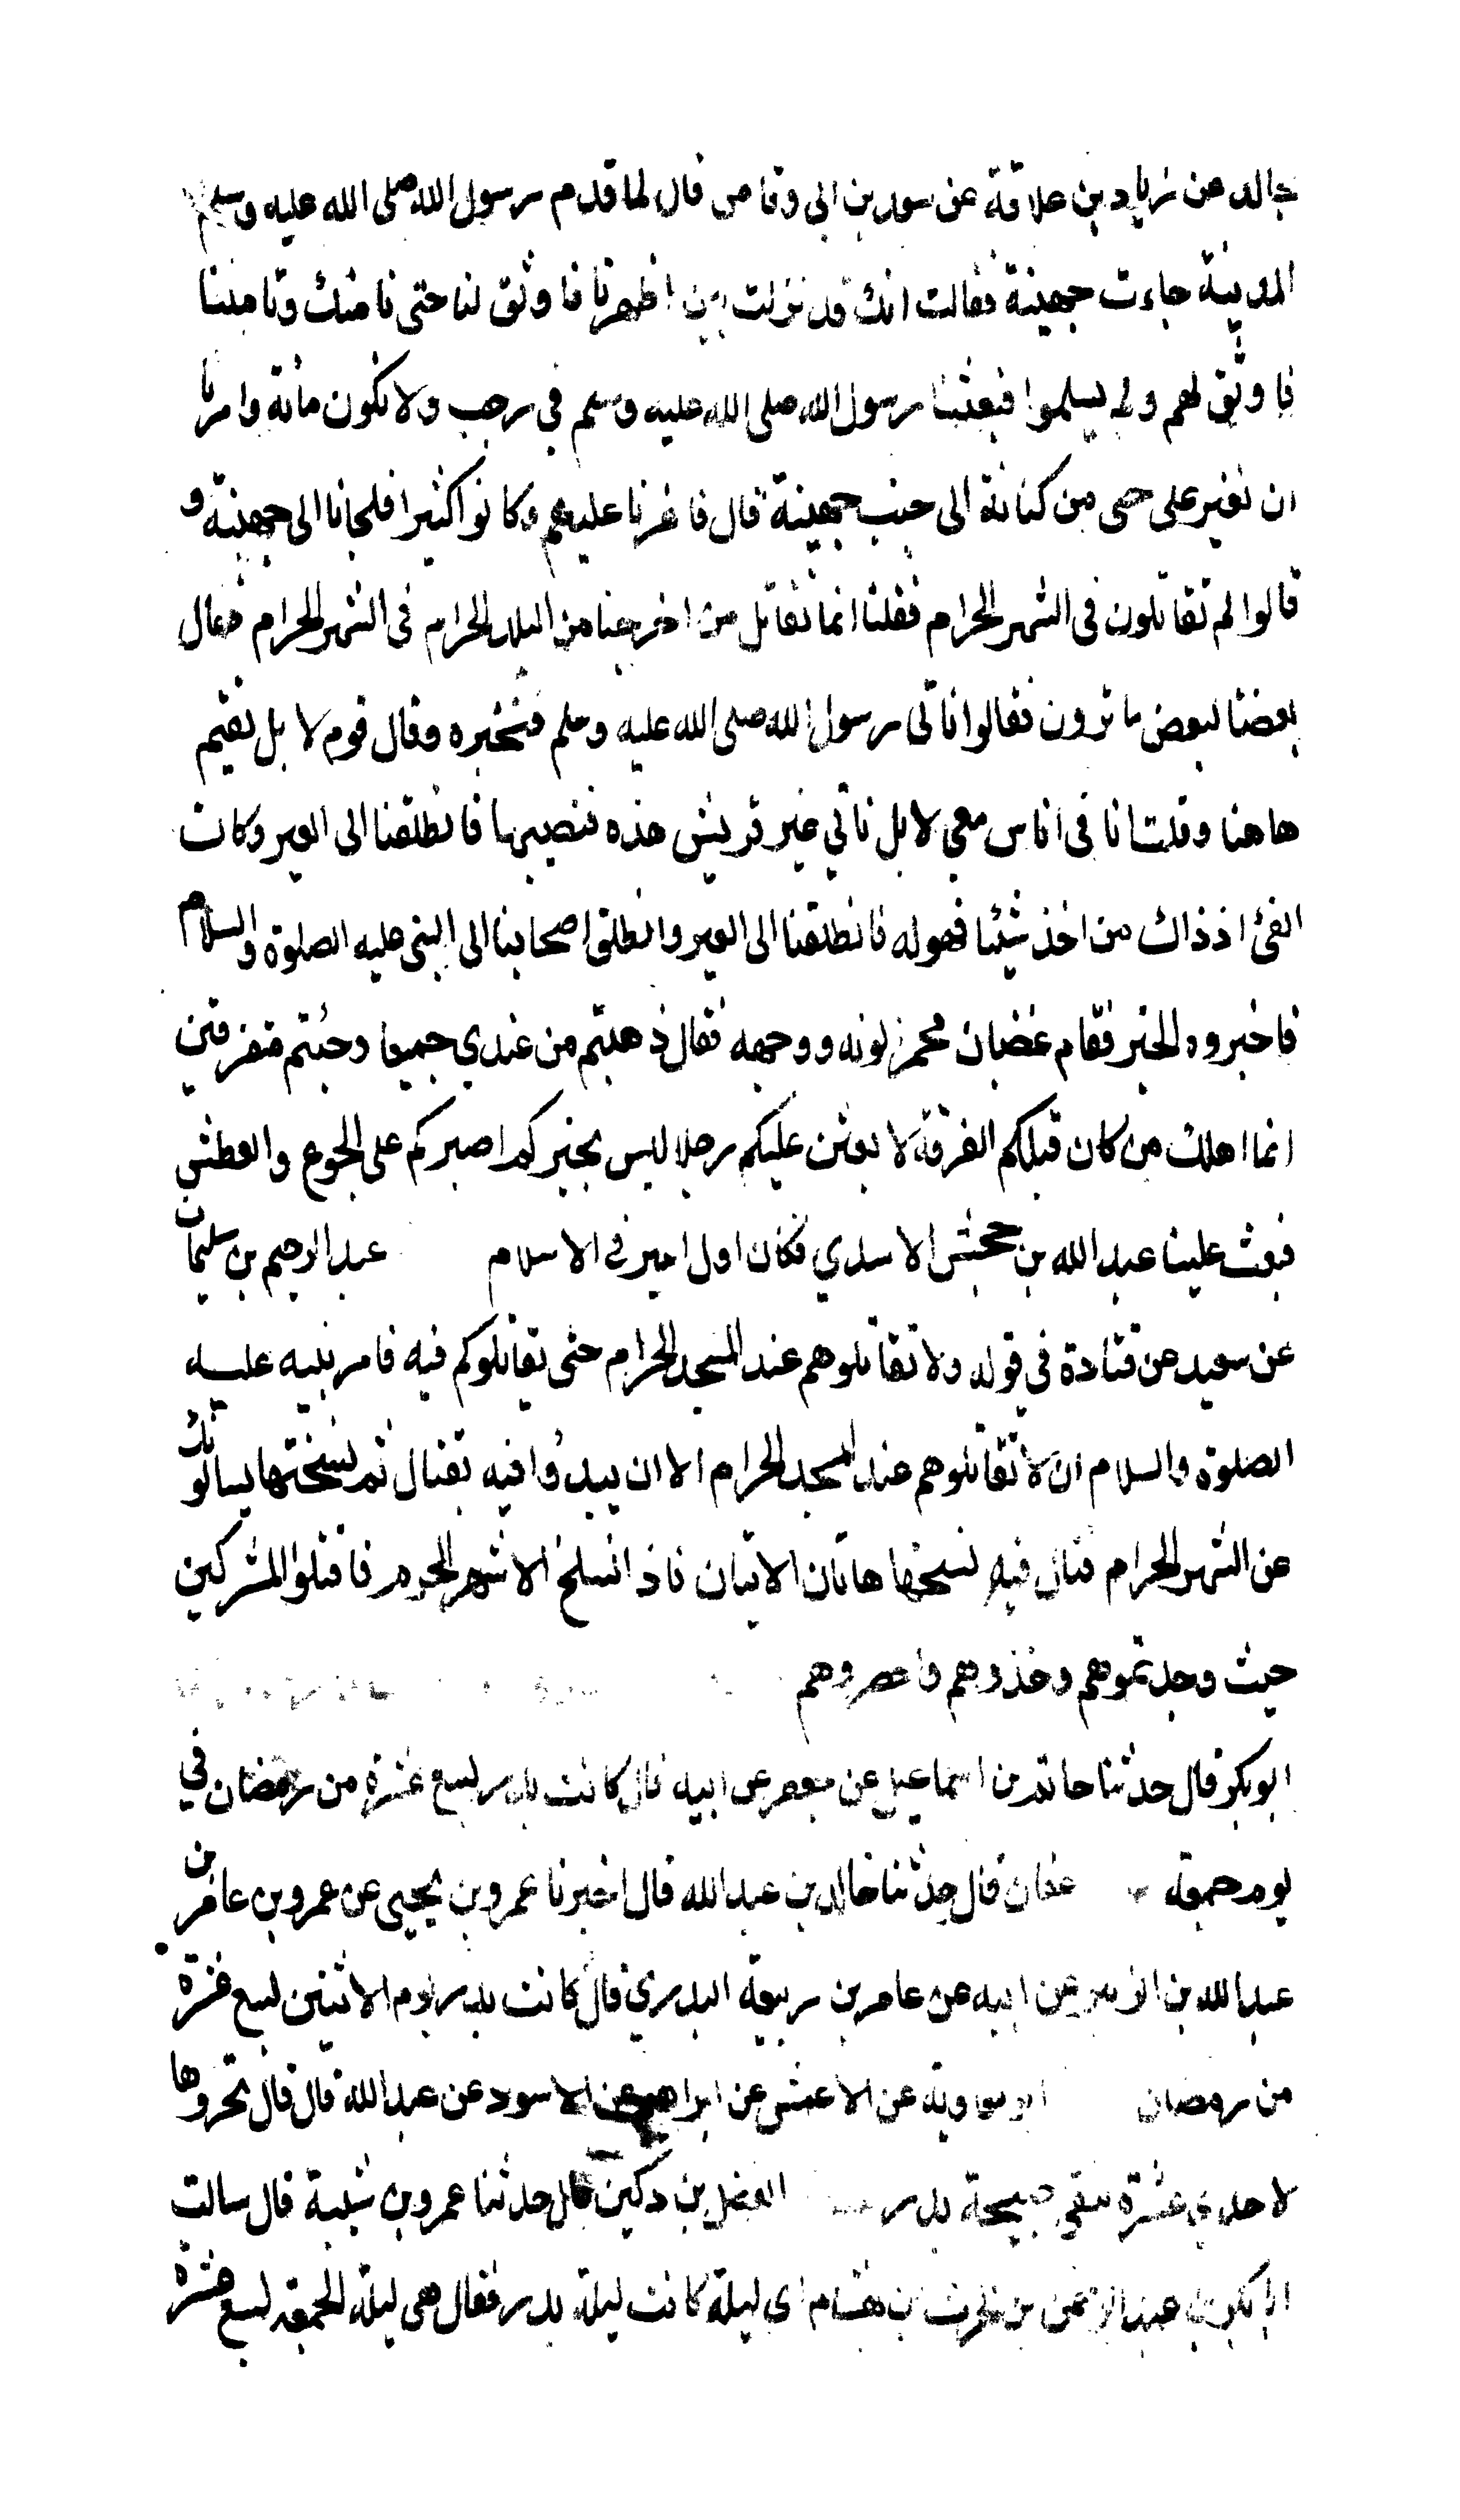 مجالد عن زياد بن علاقة عن سعد بن ابى وقاص قال لما قدم رسول الله صلى الله عليه وسلم
المدينة جاءت جهينة فقالت انك قد نزلت بين اظهرنا فاوثق لنا حتى نامنك وتامننا
فاوثق لهم ولم يسلموا فبعثنا رسول الله صلى الله عليه وسلم في رجب ولا نكون مائة وامرنا
ان نغير على حى من كنانة الى جنب جهينة قال فاغرنا عليهم وكانوا كثيرا فلجانا الى جهينة و
قالوا لم تقاتلون فى الشهر الحرام فقلنا انما نقاتل من اخرجنا من البلد الحرام فى الشهر الحرام فقال
بعضنا لبعض ما ترون فقالوا ناتى رسول الله صلى الله عليه وسلم فنخبره وقال قوم لا بل نقيم
هاهنا وقلت انا فى اناس معي لا بل ناتي عير قريش هذه فنصيبها فانطلقنا الى العير وكان
الفئ اذ ذاك من اخذ شيئا فهو له فانطلقنا الى العير وانطلق اصحابنا الى النبى عليه الصلوة والسلام
فاخبروه الخبر فقام غضبان محمر لونه ووجهه فقال ذهبتم من عندي جميعا وجئتم متفرقين
انما اهلك من كان قبلكم الفرقة لا بعثن عليكم رجلا ليس بخيركم اصبركم على الجوع والعطش
فبعث علينا عبد الله بن جحش الاسدي فكان اول امير فى الاسلام عبد الرحيم بن سليمان
عن سعيد عن قتادة في قوله ولا تقاتلوهم عند المسجد الحرام حتى يقاتلوكم فيه فامر نبيه عليه
الصلوة والسلام ان لا تقاتلوهم عند المسجد الحرام الا ان يبدؤا فيه بقتال ثم نسختها يسالونك
عن الشهر الحرام قتال فيه نسخها هاتان الايتان فاذا انسلخ الاشهر الحرم فاقتلوا المشركين
حيث وجدتموهم وخذوهم واحصروهم
ابو بكر قال حدثنا حاتم بن اسماعيل عن جعفر عن ابيه قال كانت بدر لسبع عشرة من رمضان في
يوم جمعة عفان قال حدثنا خالد بن عبد الله قال اخبرنا عمرو بن يحيى عن عمرو بن عامر بن
عبد الله بن الزبير عن ابيه عن عامر بن ربيعة البدري قال كانت بدر يوم الاثنين لسبع عشرة
من رمضان ابو معاوية عن الاعمش عن ابراهيم عن الاسود عن عبد الله قال قال تحروها
لاحدي عشرة تبقى صبيحة بدر الفضل بن دكين قال حدثنا عمرو بن شيبة قال سالت
ابا بكر بن عبد الرحمن بن الحرث بن هشام اي ليلة كانت ليلة بدر فقال هى ليلة الجمعة لسبع عشرة